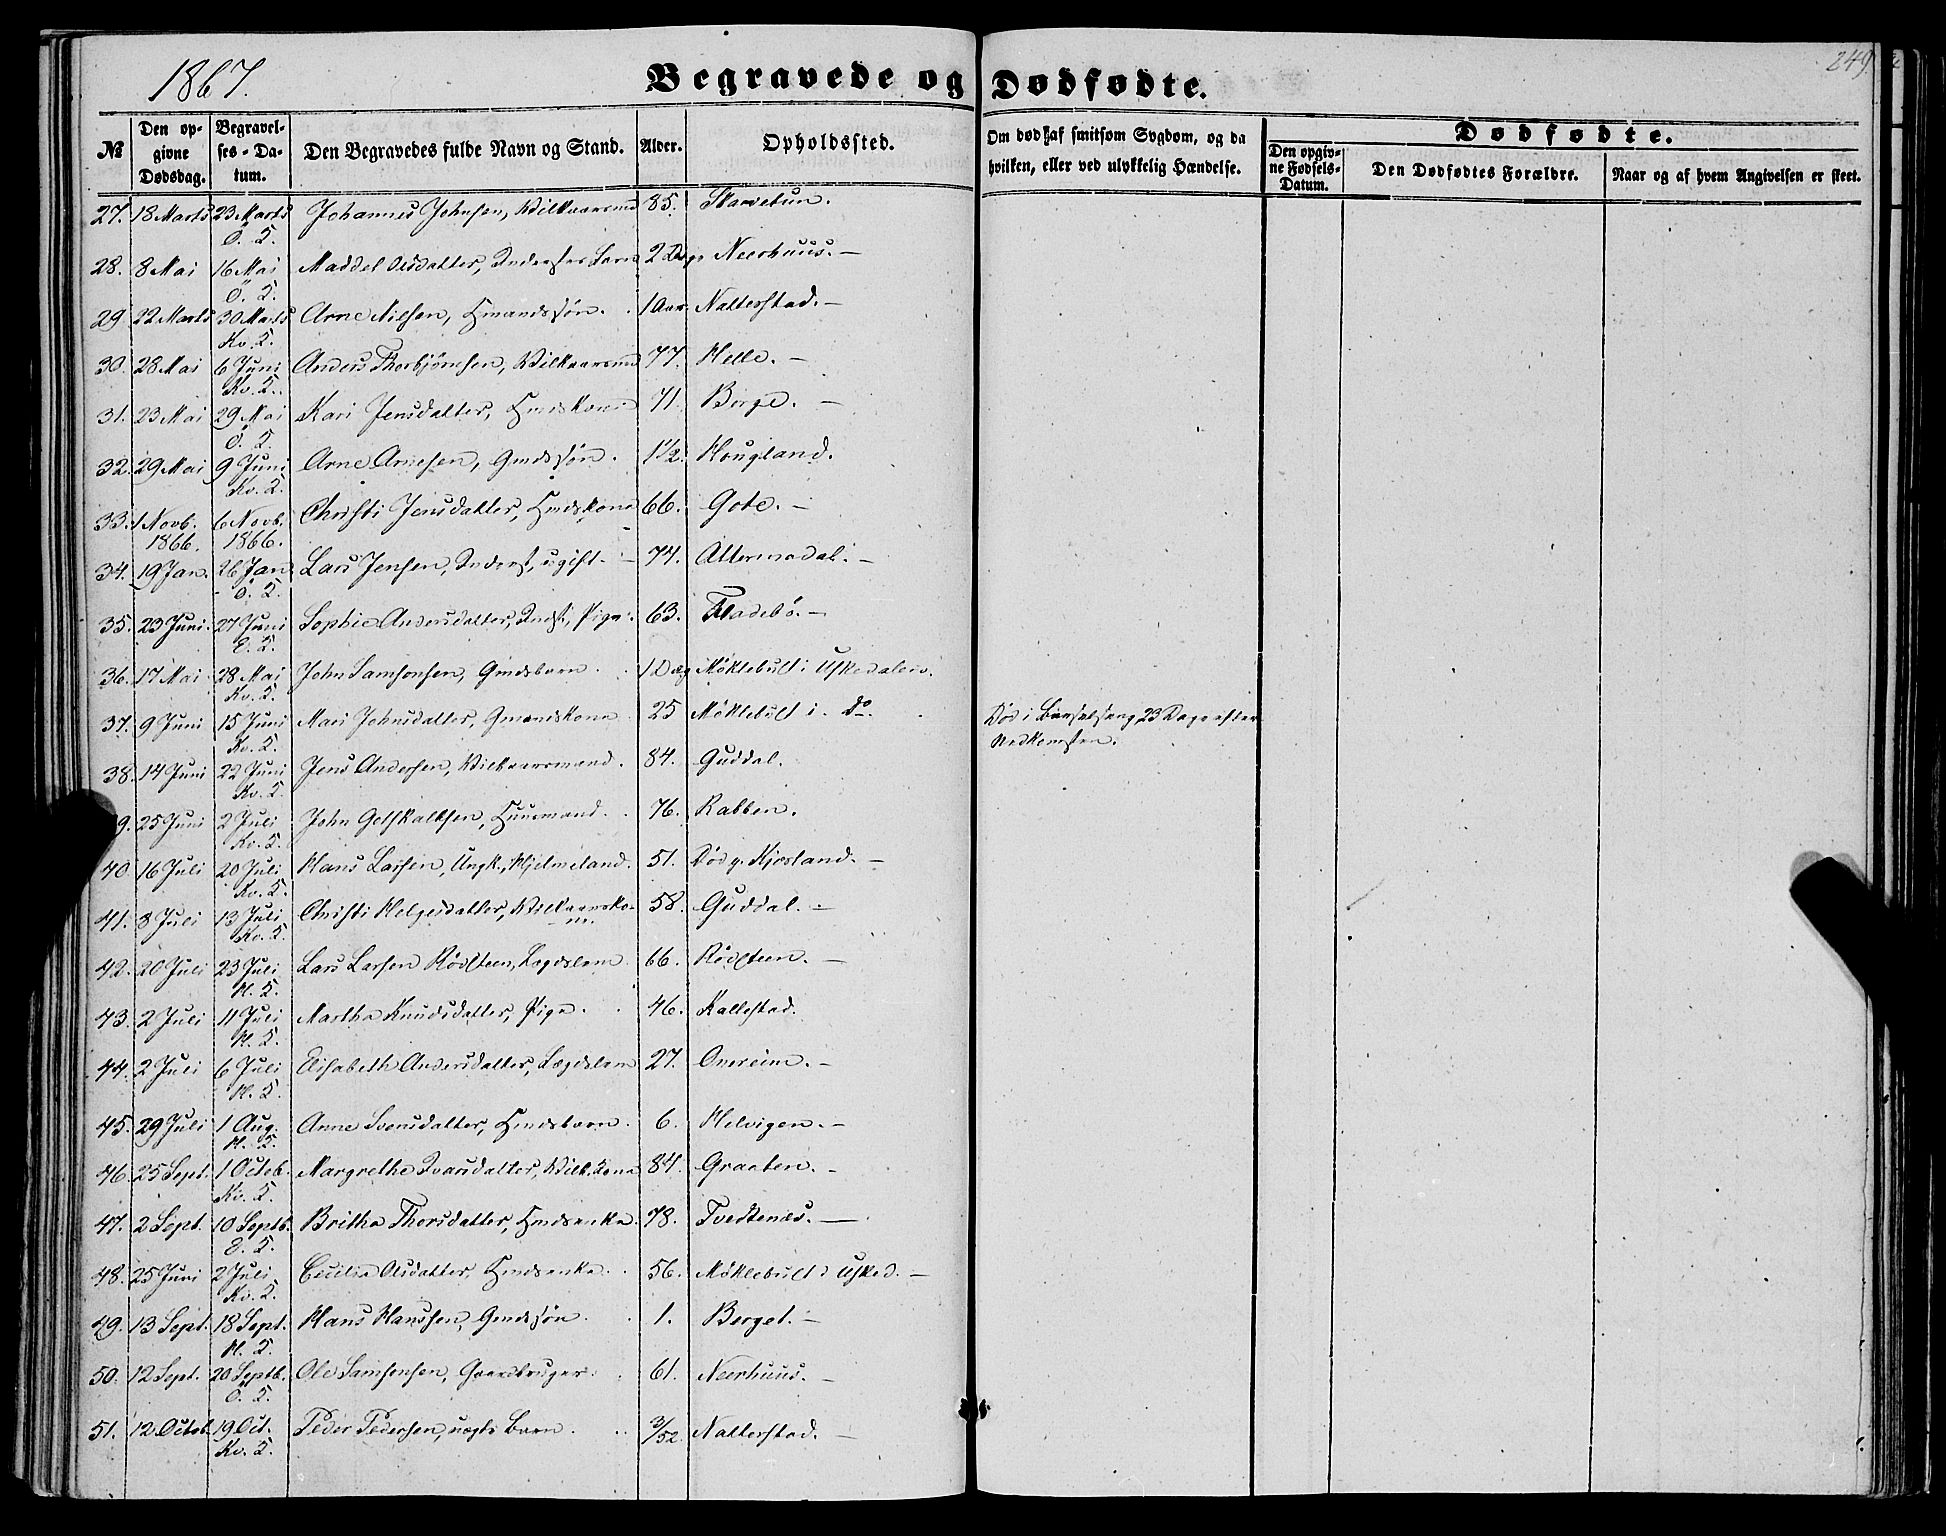 1867.
249.
Begravede og Dødfødte.
№ Den opgivne Dødsdag. Begravelses-Datum. Den Begravedes fulde Navn og Stand. Alder. Opholdssted. Om død af smitsom Sygdom, og da hvilken, eller ved ulykkelig Hændelse. Dødfødte.
Den opgivne Fødsels-Datum. Den Dødfødtes Forældre. Naar og af hvem Angivelsen er skeet.
27. 18 Marts 23 Marts Johannes Johnsen, Vilkaarsmd 85. Skarvetun.
Ö. K.
28. 8 Mai 16 Mai Maddel Olsdatter, Inderster Barn 2 Dage Neerhuus. —
Ö. K.
29 22 Marts 30 Marts Arne Nilsen, Hmandssøn. 1 Aar. Natterstad. —
Kv. K.
30. 28 Mai 6 Juni Anders Thorbjörnsen, Vilkaarsmd 77. Helle. —
Kv. K.
31. 23 Mai 29 Mai Kari Jensdatter, Hmdskone 71. Borge. —
Ö. K.
32. 29 Mai 9 Juni Arne Arnesen, Gmdssøn. 1 1/2. Hougland.
Kv. K.
33. 1 Novb. 6 Novb. Christi Jensdatter, Hmdskone 66. Gote. —
1866. 1866.
34. 19 Jan. 26 Jan Lars Jensen, Inderst, ugift. — 74. Attermodal. —
Ö. K.
35. 23 Juni. 27 Juni Sophie Andersdatter, Indst, Pige. 63. Fladebö. —
E. K.
36. 17 Mai 28 Mai John Samsonsen, Gmdsbarn. 1 Dag Möklebust i Uskedalen.
Kv. K.
37. 9 Juni 15 Juni Mari Johnsdatter, Gmandskone 25 Möklebust i do. Död i Barselseng, 23 Dage efter
Kv. K. Nedkomsten.
38. 14 Juni 22 Juni Jens Andersen, Vilkaarsmand. 84. Guddal.
Kv. K.
9. 25 Juni 2 Juli John Gotskalksen, Huusmand. 76. Rabben.
Kv. K.
40 16 Juli 20 Juli Hans Larsen, Ungk., Hjelmeland. 51. Död p. Kjærland. —
Kv. K.
41. 8 Juli 13 Juli Christi Helgesdatter, Vilkaarsko- 58. Guddal. —
Kv. K. ne.
42. 20 Juli 23 Juli Lars Larsen Rödsteen, Lægdslem 66. Rödsteen. —
H. K.
43. 2 Juli 11 Juli Martha Knudsdatter, Pige. 46. Kallestad.
H. K.
44. 2 Juli 6 Juli Elisabeth Andersdatter, Lægdslem 27. Omreim. —
H. K.
45. 29 Juli 1 Aug. Anne Svensdatter, Hmdsbarn. 6. Helvigen. —
H. K.
46. 25 Sept. 1 Octob. Margrethe Ivarsdatter, Vilk.kone 84. Gravten. —
Kv. K.
47. 2 Sept. 10 Septb. Britha Thorsdatter, Hmdsenke. 78. Tvedtenæs. —
E. K.
48. 25 Juni 2 Juli Cecilia Olsdatter, Hmdsenke. 56. Möklebust i Usked. —
Kv. K.
49. 13 Sept. 18 Sept. Hans Hanssen, Gmdssøn. 1. Berget. —
H. K.
50. 12 Sept. 20 Septb. Ole Samsonsen, Gaardbruger. 61. Neerhuus. —
Ö. K.
51. 12 Octob. 19 Oct. Peder Pedersen, uægte Barn. 3/52. Natterstad. —
Kv. K.